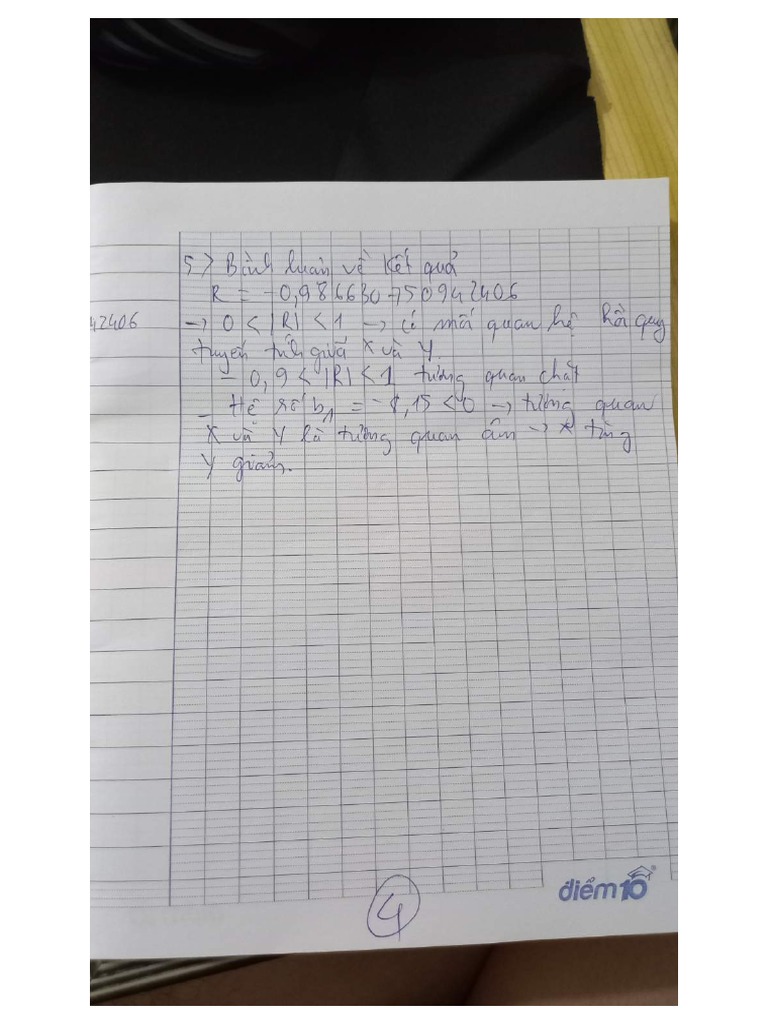 5> Bình luận về kết quả
R = -0,986630750942406
42406
→ 0 < |R| < 1 → có mối quan hệ hồi quy
tuyến tính giữa X và Y.
- 0,9 < |R| < 1 tương quan chặt
- Hệ số b1 = -1,15 < 0 → tương quan
X và Y là tương quan âm → X tăng
Y giảm.
điểm10
4